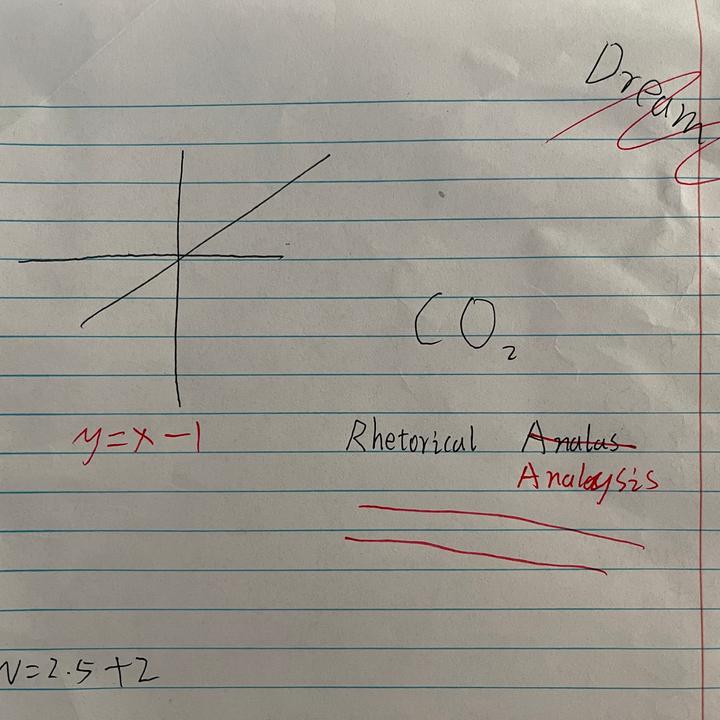 Dream
CO₂
y=x-1
Rhetorical Analas
Analysis
N=2.5+2